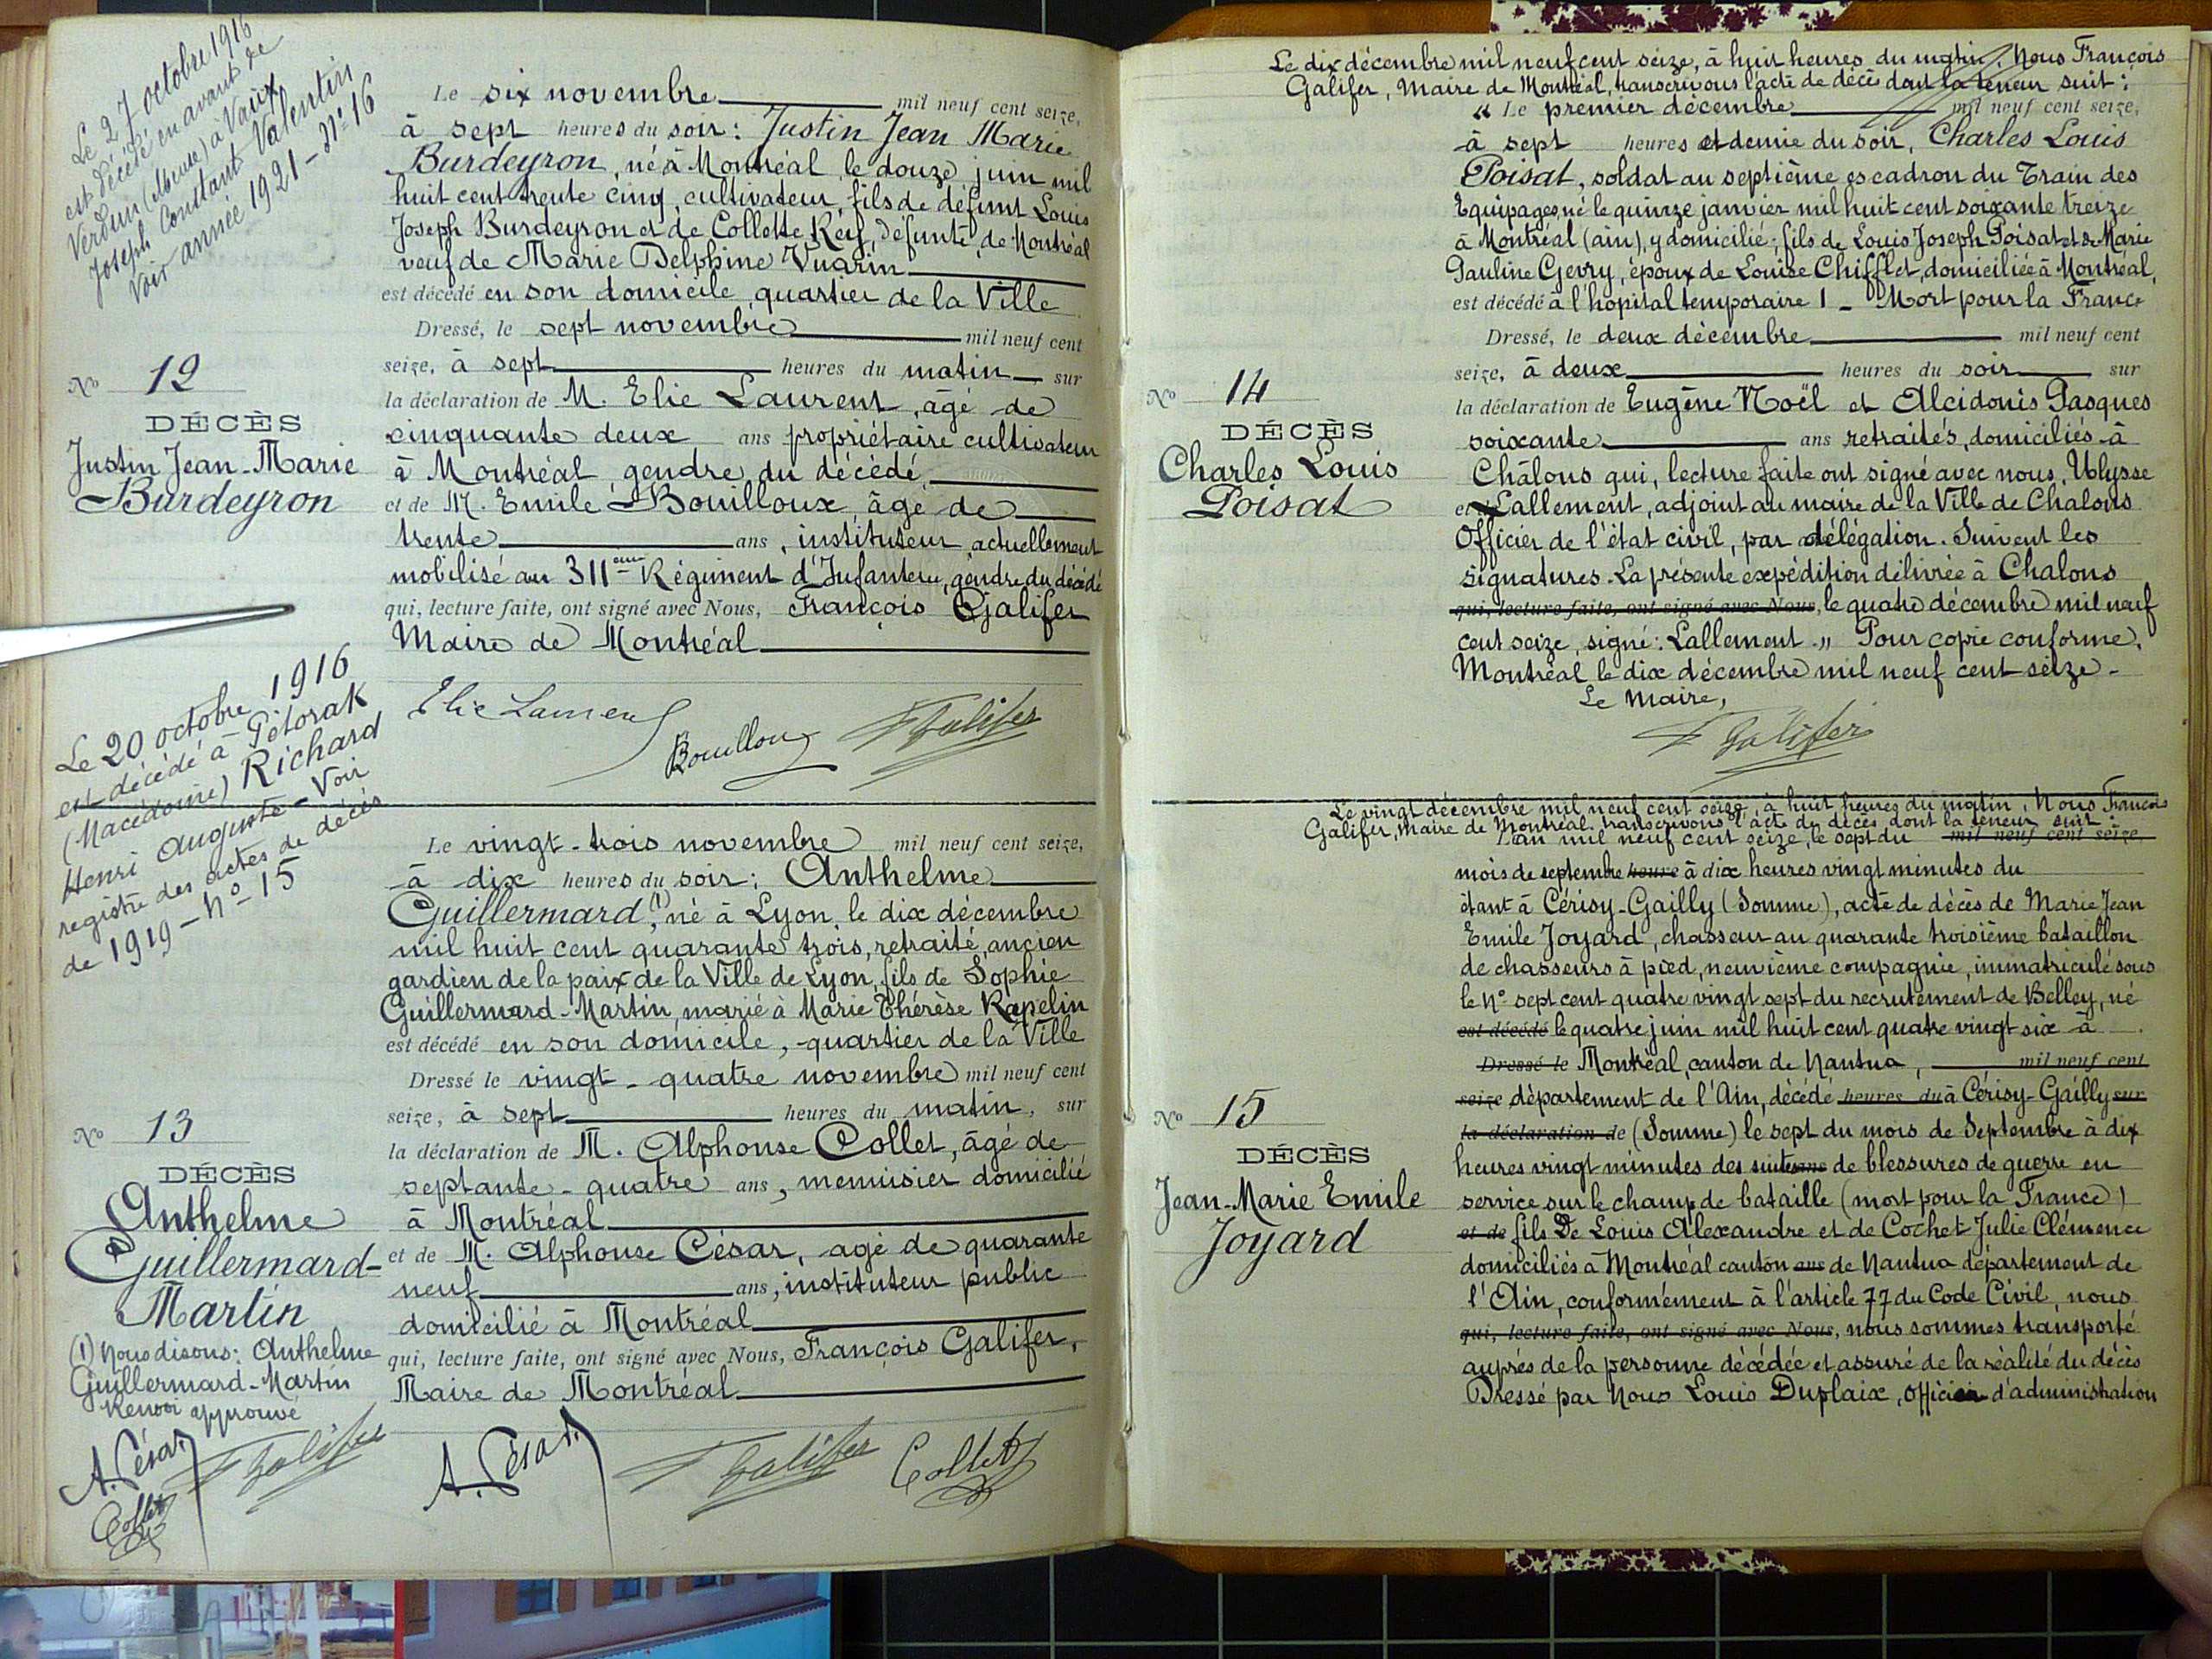 Le 27 octobre 1916
est décédé en avant de
Verdun (Meuse) à Vaux
Joseph Constant Valentin
Voir année 1921 - N° 16
Le six novembre mil neuf cent seize,
à sept heures du soir : Justin Jean Marie
Burdeyron, né à Montréal le douze juin mil
huit cent trente cinq, cultivateur, fils de défunt Louis
Joseph Burdeyron et de Collette Réif, défunte, de Montréal
veuf de Marie Delphine Vuarin
est décédé en son domicile, quartier de la Ville
Dressé, le sept novembre mil neuf cent
seize, à sept heures du matin sur
la déclaration de M. Elie Laurent, âgé de
cinquante deux ans propriétaire cultivateur
à Montréal, gendre du décédé,
et de M. Emile Bouilloux, âgé de
trente ans, instituteur actuellement
mobilisé au 311ème Régiment d'Infanterie, gendre du décédé
qui, lecture faite, ont signé avec Nous, François Galifer
Maire de Montréal
Elie Laurent
Bouilloux
F Galifer
N° 12
DÉCÈS
Justin Jean-Marie
Burdeyron
Le 20 octobre 1916
est décédé à Pétorak
(Macédoine) Richard
Henri Auguste - Voir
registre des actes de décès
de 1919 - N° 15
Le vingt-trois novembre mil neuf cent seize,
à dix heures du soir ; Anthelme
Guillermard,(1) né à Lyon le dix décembre
mil huit cent quarante trois, retraité, ancien
gardien de la paix de la Ville de Lyon, fils de Sophie
Guillermard-Martin, marié à Marie Thérèse Rapelin
est décédé en son domicile, quartier de la Ville
Dressé le vingt-quatre novembre mil neuf cent
seize, à sept heures du matin, sur
la déclaration de M. Alphonse Collet, âgé de
septante-quatre ans, menuisier domicilié
à Montréal
et de M. Alphonse César, agé de quarante
neuf ans, instituteur public
domicilié à Montréal
qui, lecture faite, ont signé avec Nous, François Galifer,
Maire de Montréal
A. César
F Galifer
Collet
N° 13
DÉCÈS
Anthelme
Guillermard-
Martin
(1) Nous disons : Anthelme
Guillermard-Martin
Renvoi approuvé
A. César
F Galifer
Collet
Le dix décembre mil neuf cent seize, à huit heures du matin. Nous François
Galifer, Maire de Montréal, transcrivons l'acte de décès dont la teneur suit :
« Le premier décembre mil neuf cent seize,
à sept heures et demie du soir, Charles Louis
Poisat, soldat au septième escadron du Train des
Equipages, né le quinze janvier mil huit cent soixante treize
à Montréal (ain), y domicilié ; fils de Louis Joseph Poisat et de Marie
Pauline Gevry, époux de Louise Chifflet, domiciliée à Montréal,
est décédé à l'hôpital temporaire 1 - Mort pour la France
Dressé, le deux décembre mil neuf cent
seize, à deux heures du soir sur
la déclaration de Eugène Noël et Alcidonis Pasques
soixante ans retraités, domiciliés à
Châlons qui, lecture faite ont signé avec nous, Ulysse
et de Lallement, adjoint au maire de la Ville de Chalons
Officier de l'état civil, par délégation. Suivent les
signatures. La présente expédition délivrée à Chalons
qui, lecture faite, ont signé avec Nous, le quatre décembre mil neuf
cent seize, signé : Lallement. » Pour copie conforme.
Montréal le dix décembre mil neuf cent seize -
Le Maire,
F Galifer
N° 14
DÉCÈS
Charles Louis
Poisat
Le vingt décembre mil neuf cent seize, à huit heures du matin, Nous François
Galifer, Maire de Montréal transcrivons l'acte de décès dont la teneur suit :
L'an mil neuf cent seize, le sept du mil neuf cent seize
mois de septembre heure à dix heures vingt minutes du
étant à Cérisy-Gailly (Somme), acte de décès de Marie Jean
Emile Joyard, chasseur au quarante troisième bataillon
de chasseurs à pied, neuvième compagnie, immatriculé sous
le N° sept cent quatre vingt sept du recrutement de Belley, né
est décédé le quatre juin mil huit cent quatre vingt six à
Dressé le Montréal, canton de Nantua, mil neuf cent
seize département de l'Ain, décédé heures du à Cérisy-Gailly sur
la déclaration de (Somme) le sept du mois de Septembre à dix
heures vingt minutes des suites ans de blessures de guerre en
service sur le champ de bataille (mort pour la France)
et de fils De Louis Alexandre et de Cochet Julie Clémence
domiciliés à Montréal canton ans de Nantua département de
l'Ain, conformément à l'article 77 du Code Civil, nous
qui, lecture faite, ont signé avec Nous, nous sommes transporté
auprès de la personne décédée et assuré de la réalité du décès
Dressé par Nous Louis Duplaix, officier d'administration
N° 15
DÉCÈS
Jean-Marie Emile
Joyard